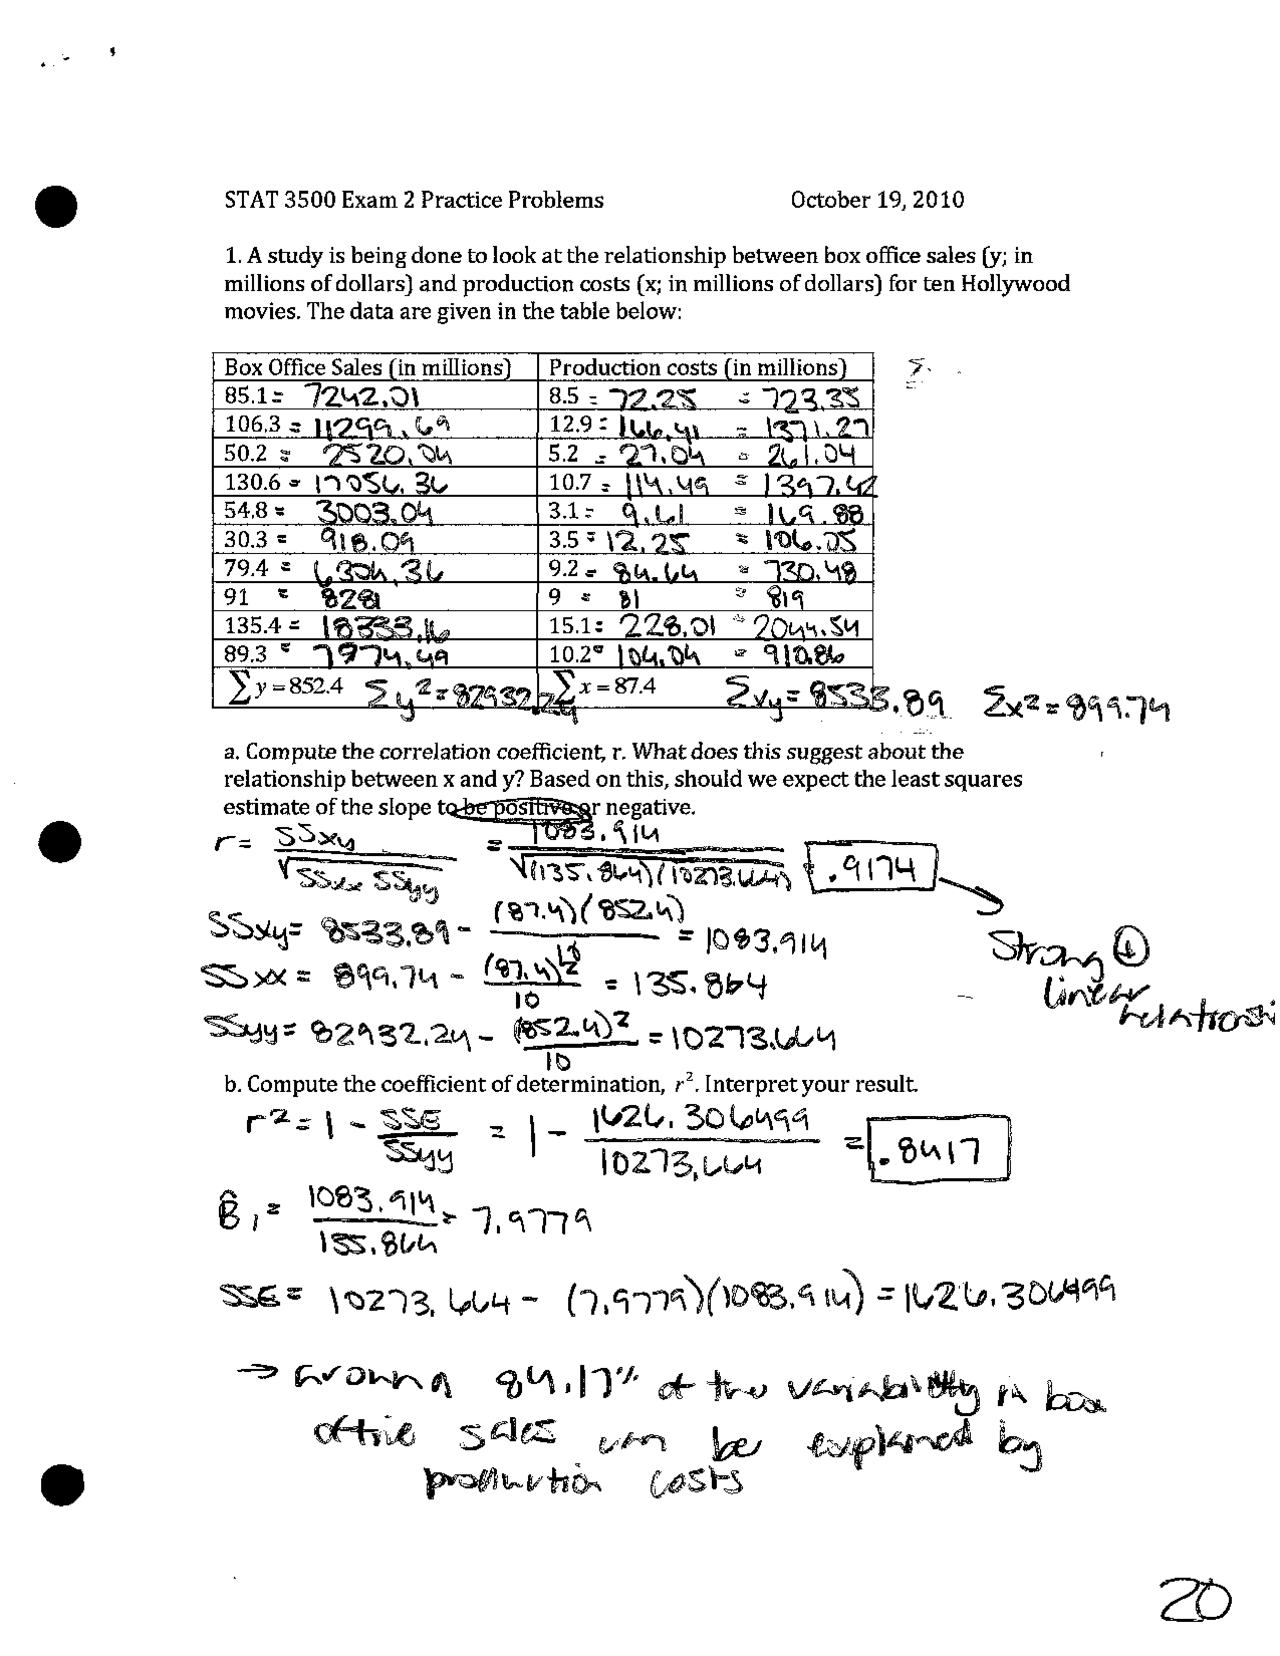 STAT 3500 Exam 2 Practice Problems October 19, 2010
1. A study is being done to look at the relationship between box office sales (y; in
millions of dollars) and production costs (x; in millions of dollars) for ten Hollywood
movies. The data are given in the table below:
Box Office Sales (in millions) Production costs (in millions) Σ
85.1 = 7242.01 8.5 = 72.25 = 723.35
106.3 = 11299.69 12.9 = 166.41 = 1371.27
50.2 = 2520.04 5.2 = 27.04 = 261.04
130.6 = 17056.36 10.7 = 114.49 = 1397.42
54.8 = 3003.04 3.1 = 9.61 = 169.88
30.3 = 918.09 3.5 = 12.25 = 106.05
79.4 = 6304.36 9.2 = 84.64 = 730.48
91 = 8281 9 = 81 = 819
135.4 = 18333.16 15.1 = 228.01 = 2044.54
89.3 = 7974.49 10.2 = 104.04 = 910.86
∑y = 852.4 Σy² = 82932.24 ∑x = 87.4 Σxy = 8533.89 Σx² = 899.74
a. Compute the correlation coefficient, r. What does this suggest about the
relationship between x and y? Based on this, should we expect the least squares
estimate of the slope to be positive or negative.
r = SSxy / √SSxx SSyy = 1083.914 / √(135.864)(10273.664) = .9174
SSxy = 8533.89 - (87.4)(852.4) / 10 = 1083.914
Strong ⊕
SSxx = 899.74 - (87.4)² / 10 = 135.864
linear
SSyy = 82932.24 - (852.4)² / 10 = 10273.664
b. Compute the coefficient of determination, r². Interpret your result.
r² = 1 - SSE / SSyy = 1 - 1626.306499 / 10273.664 = .8417
β̂₁ = 1083.914 / 135.864 = 7.9779
SSE = 10273.664 - (7.9779)(1083.914) = 1626.306499
→ Around 84.17% of the variability in box
office sales can be explained by
production costs
20